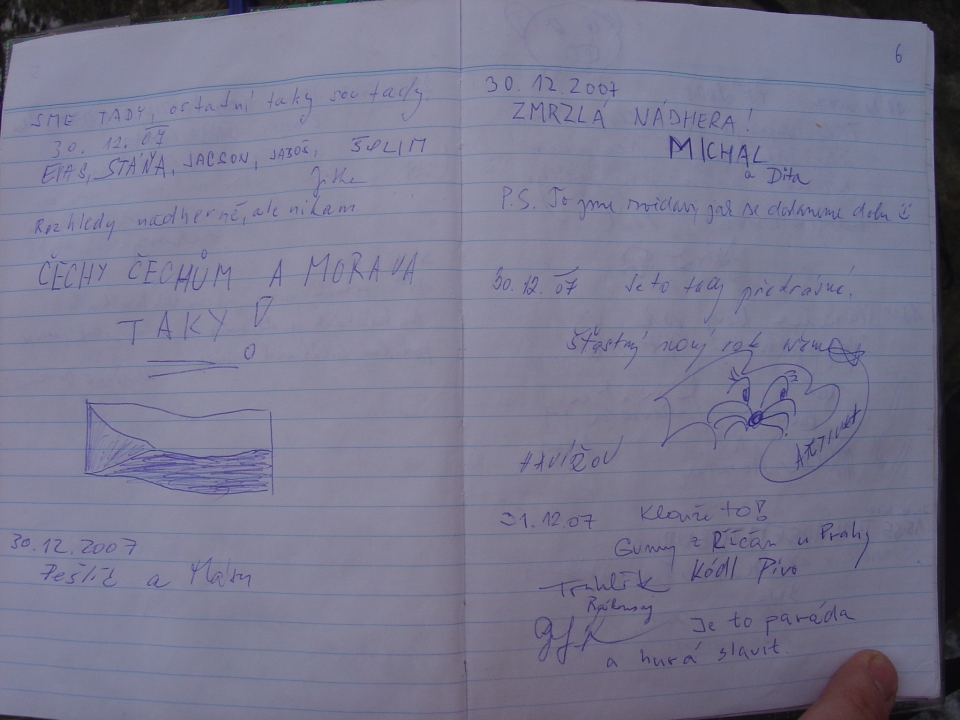 SME TADY, ostatní taky sou tady
30. 12. 07
EVAS, STÁŇA, JACSON,
Jitka
Rozhledy nádherné, ale nikam
ČECHY ČECHŮM A MORAVA
TAKY!
30.12.2007
a
6
30.12.2007
ZMRZLÁ NÁDHERA!
MICHAL
a Dita
P.S. To jsme zvědavy, jak se dostaneme dolu
30.12.07 Je to tady překrásné.
Šťastný nový rok
HAVÍŘOV
31.12.07 Klouže to!
z Říčan u Prahy
Truhlík Kódl Pivo
Je to paráda
a hurá slavit.